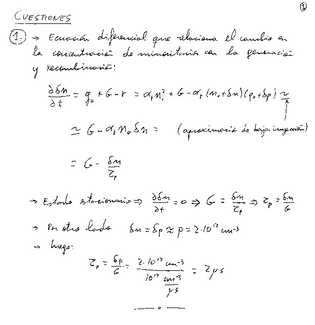 CUESTIONES
1.- → Ecuación diferencial que relaciona el cambio en
la concentración de minoritarios con la generación
y recombinación:
∂δn/∂t = g₀ + G - r = αᵣnᵢ² + G - αᵣ(n₀+δn)(p₀+δp) ≃
≃ G - αᵣn₀δn = (aproximación de baja inyección)
= G - δn/τₚ
→ Estado estacionario ⇒ ∂δn/∂t = 0 ⇒ G = δn/τₚ ⇒ τₚ = δn/G
→ Por otro lado δn = δp ≈ p = 2·10¹³ cm⁻³
→ luego:
τₚ = δp/G = 2·10¹³ cm⁻³ / 10¹³ cm⁻³/μs = 2μs